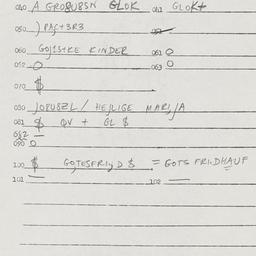 040 A GROBUBSN GLOK 041 GLOK+
050 ) PAC+3R3
060 GOTSTKE KINDER 061 O
062 O 063 O
070 $
080 JOBUBZL / HEJLIGE MARIJA
081 $ QV + GL $
082 —
090 O
100 $ GOTESFRIJD $ = GOTS FRIDHAUF
101 — 102 —